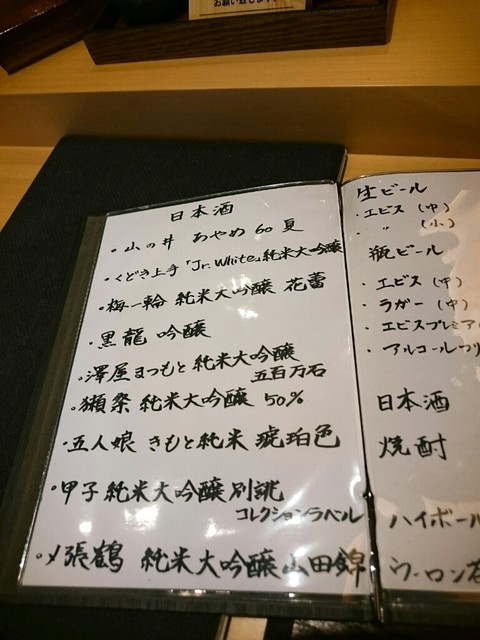 お願い致します。
日本酒
・山の井 あやめ 60 夏
・くどき上手「Jr.White」純米大吟醸
・梅一輪 純米大吟醸 花蕾
・黒龍 吟醸
・澤屋まつもと 純米大吟醸
五百万石
・獺祭 純米大吟醸 50%
・五人娘 きもと純米 琥珀色
・甲子 純米大吟醸 別誂
コレクションラベル
・〆張鶴 純米大吟醸 山田錦
生ビール
・エビス (中)
・ 〃 (小)
瓶ビール
・エビス (中)
・ラガー (中)
・エビスプレミア
・アルコールフリ
日本酒
焼酎
ハイボール
ウーロン